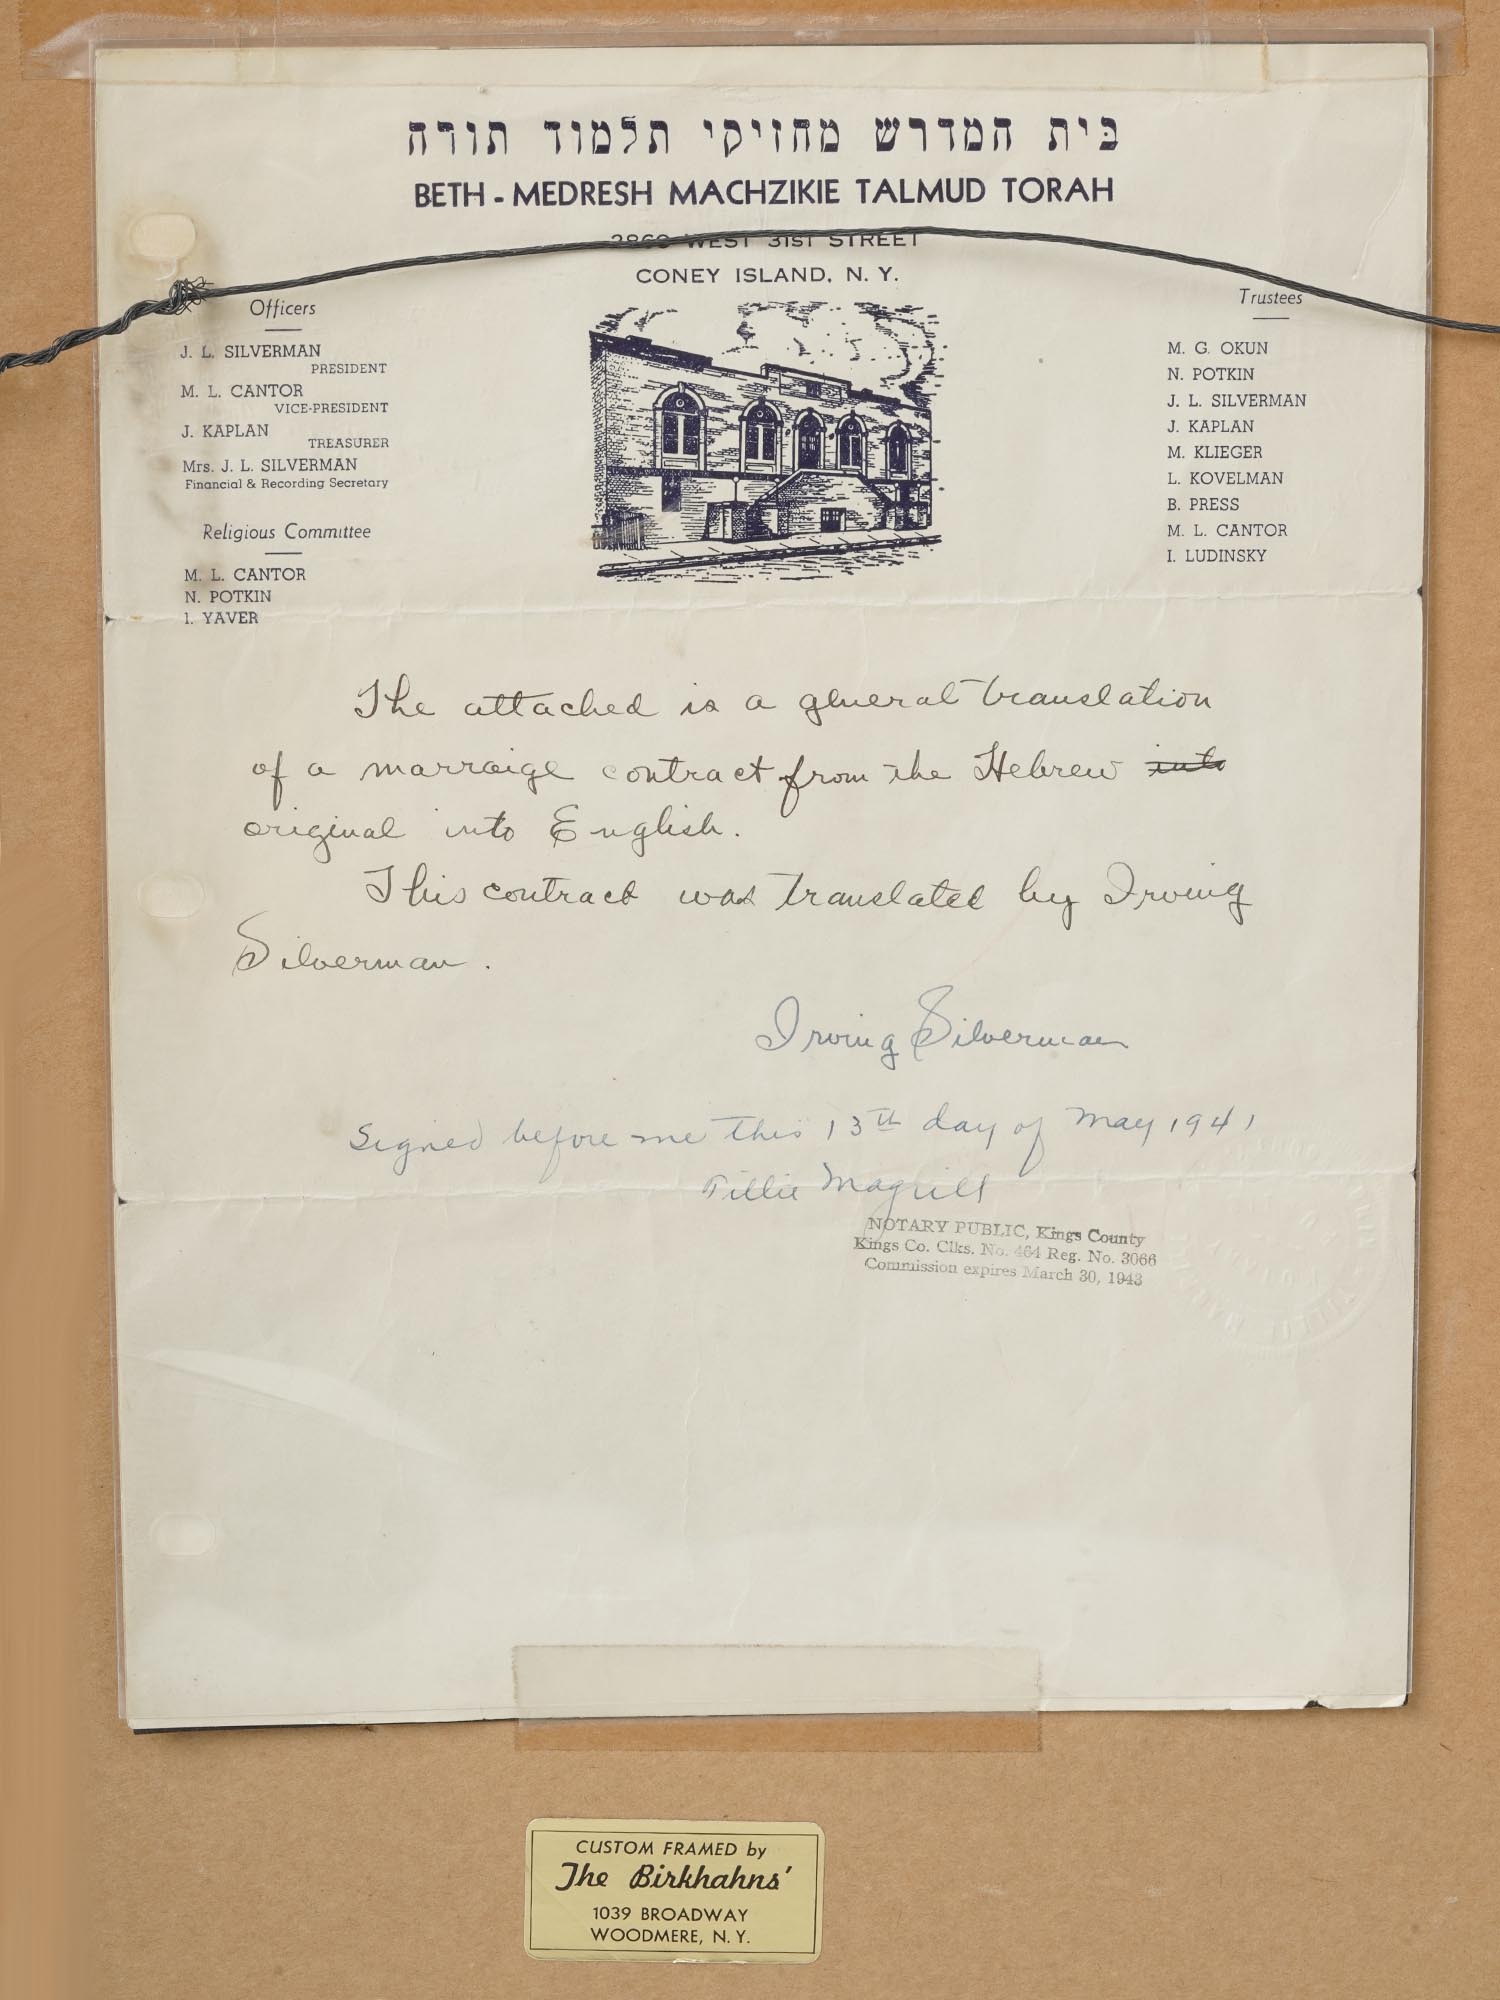 בית המדרש מחזיקי תלמוד תורה
BETH - MEDRESH MACHZIKIE TALMUD TORAH
WEST 31ST STREET
CONEY ISLAND, N. Y.
Officers
J. L. SILVERMAN
PRESIDENT
M. L. CANTOR
VICE-PRESIDENT
J. KAPLAN
TREASURER
Mrs. J. L. SILVERMAN
Financial & Recording Secretary
Religious Committee
M. L. CANTOR
N. POTKIN
I. YAVER
Trustees
M. G. OKUN
N. POTKIN
J. L. SILVERMAN
J. KAPLAN
M. KLIEGER
L. KOVELMAN
B. PRESS
M. L. CANTOR
I. LUDINSKY
The attached is a general translation
of a marraige contract from the Hebrew into
original into English.
This contract was translated by Irving
Silverman.
Irving Silverman
Signed before me this 13th day of May 1941
Tillie Magrill
NOTARY PUBLIC, Kings County
Kings Co. Clks. No. 464 Reg. No. 3066
Commission expires March 30, 1943
CUSTOM FRAMED by
The Birkhahns'
1039 BROADWAY
WOODMERE, N. Y.